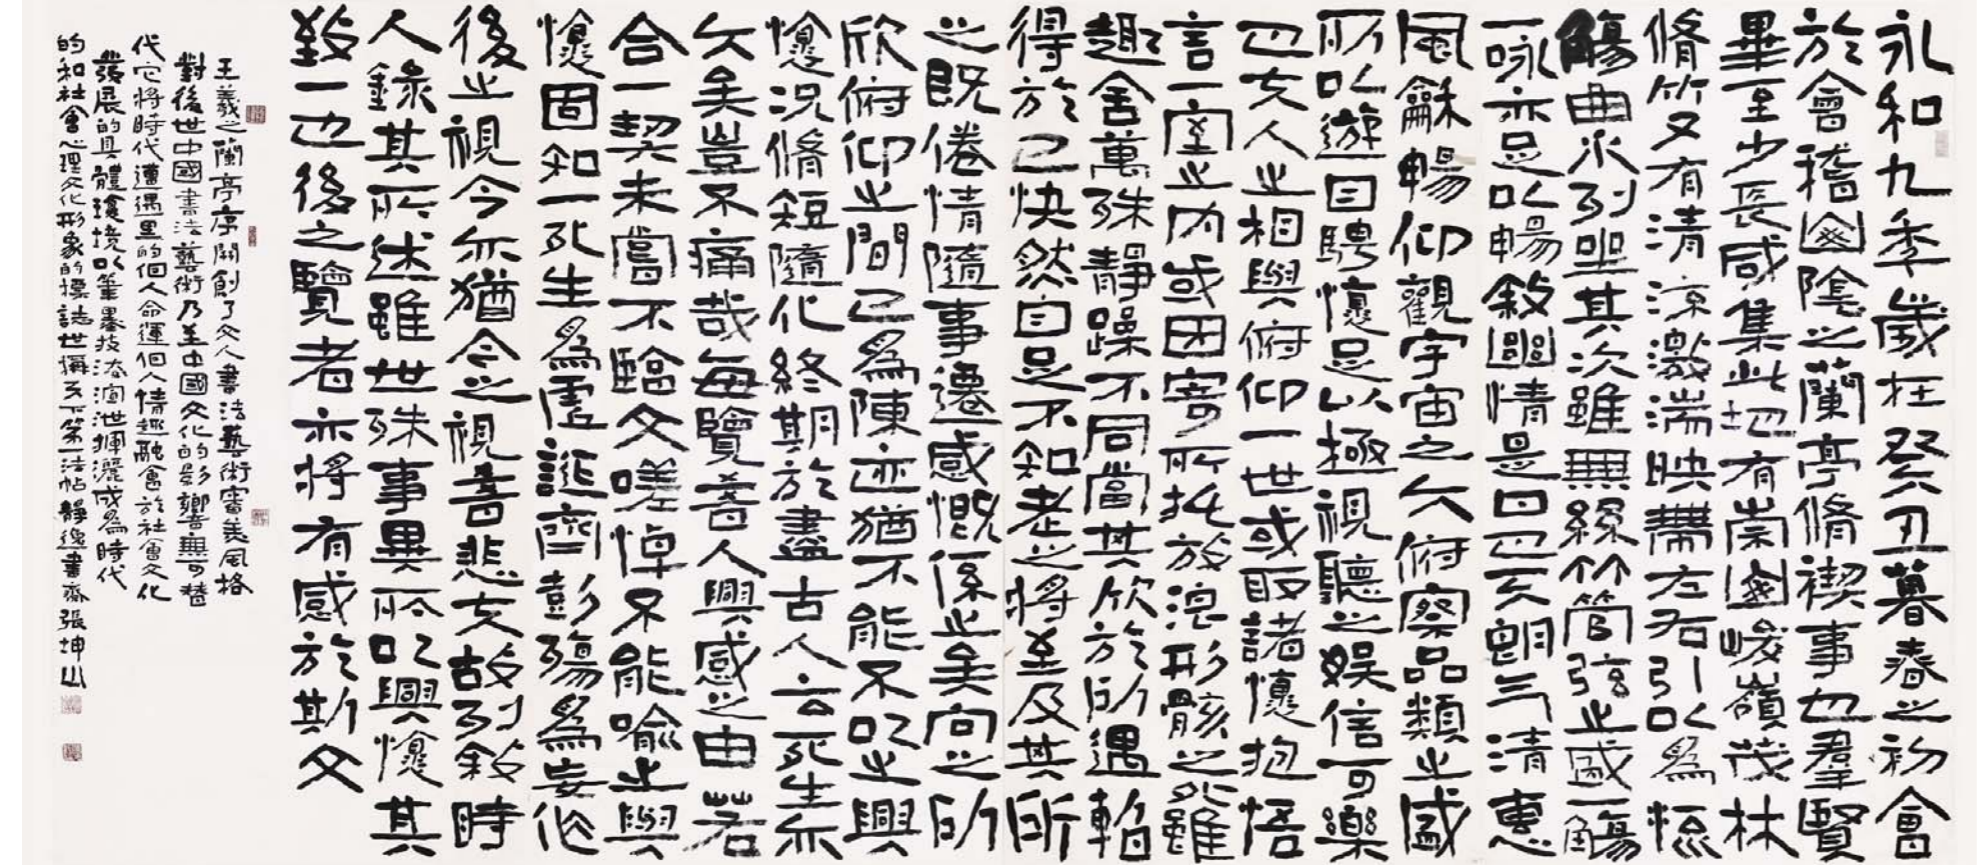 永和九季歲在癸丑暮春之初會
於會稽山陰之蘭亭脩禊事也羣賢
畢至少長咸集此地有崇山峻嶺茂林
脩竹又有清流激湍映帶左右引以爲流
觴曲水列坐其次雖無絲竹管弦之盛一觴
一咏亦足以暢敘幽情是日也天朗氣清惠
風龢暢仰觀宇宙之大俯察品類之盛
所以遊目騁懷足以極視聽之娛信可樂
也夫人之相與俯仰一世或取諸懷抱悟
言一室之內或因寄所托放浪形骸之外雖
趣舍萬殊靜躁不同當其欣於所遇暫
得於己快然自足不知老之將至及其所
之既倦情隨事遷感慨係之矣向之所
欣俯仰之間已爲陳迹猶不能不以之興
懷況脩短隨化終期於盡古人云死生亦
大矣豈不痛哉每覽昔人興感之由若
合一契未嘗不臨文嗟悼不能喻之興
懷固知一死生爲虛誕齊彭殤爲妄作
後之視今亦猶今之視昔悲夫故列敘時
人錄其所述雖世殊事異所以興懷其
致一也後之覽者亦將有感於斯文
王羲之蘭亭序開創了文人書法藝術審美風格
對後世中國書法藝術乃至中國文化的影響無可替
代它將時代遭遇里的個人命運個人情趣融會於社會文化
發展的具體環境以筆墨技法宣泄揮灑成爲時代
的和社會心理文化形象的標誌世稱天下第一法帖靜逸書齋張坤山